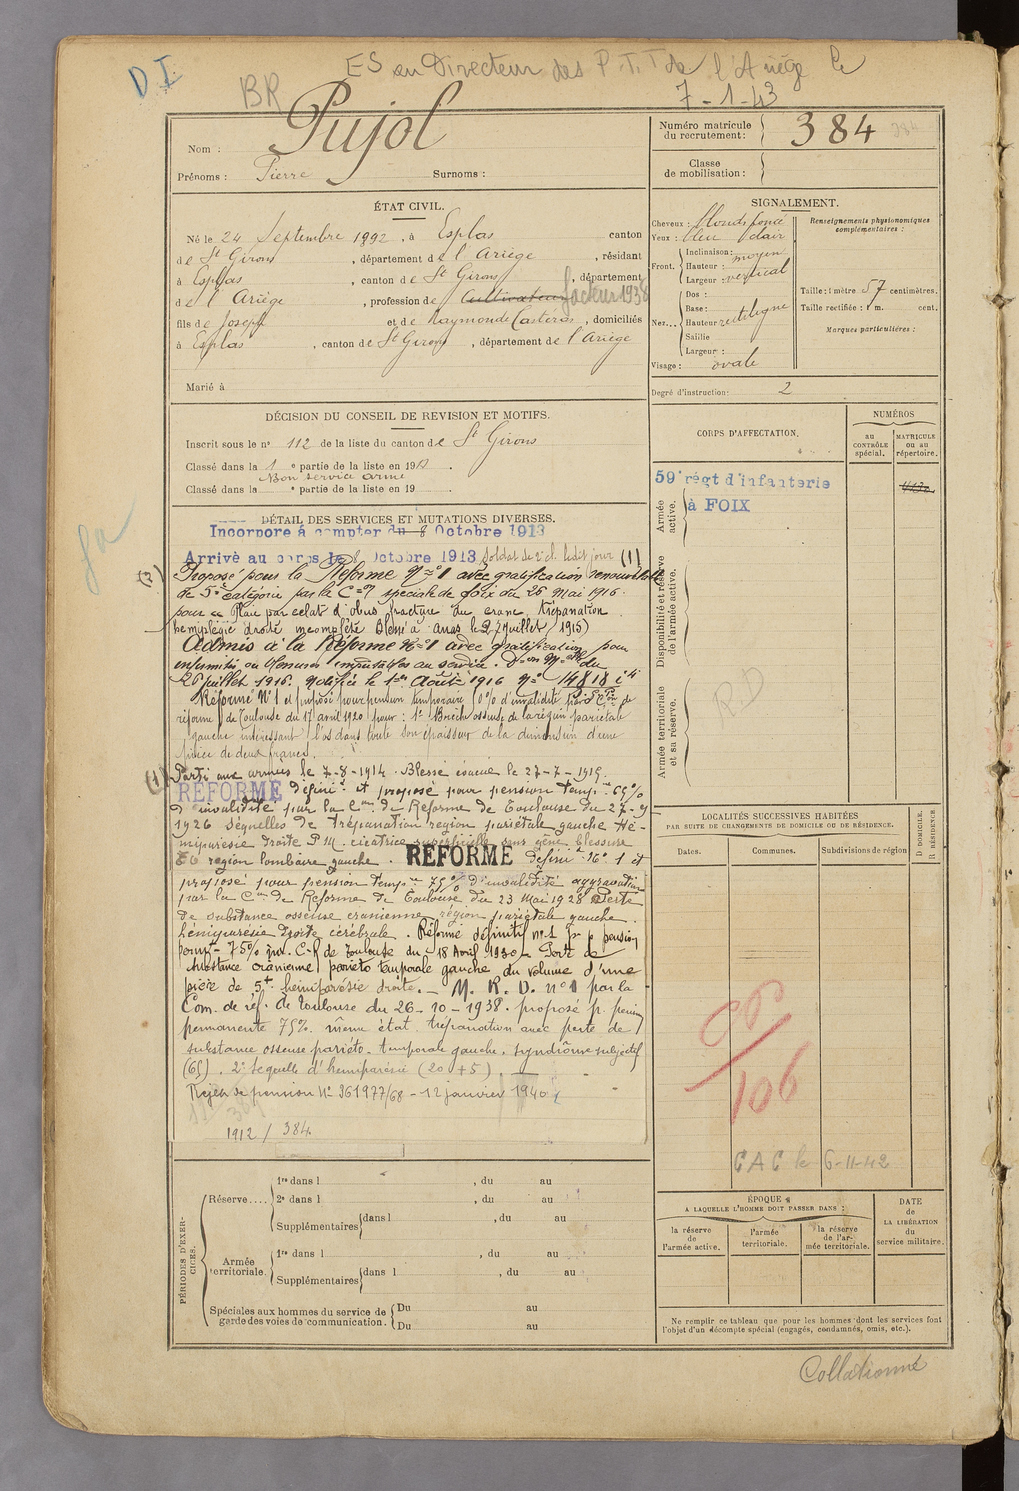 D I.
ES au Directeur des P.T.T. de l'Ariège le
7-1-43
BR
Nom : Pujol
Prénoms : Pierre Surnoms :
Numéro matricule du recrutement : 384
Classe de mobilisation :
ÉTAT CIVIL.
Né le 24 Septembre 1892, à Esplas canton
de St Girons, département de l'Ariège, résidant
à Esplas, canton de St Girons, département
de l'Ariège, profession de Cultivateur facteur 1938
fils de Joseph et de Raymonde Castéras, domiciliés
à Esplas, canton de St Girons, département de l'Ariège
Marié à
SIGNALEMENT.
Cheveux : blonds foncé
Yeux : bleu clair
Front. Inclinaison : moyen
Hauteur : vertical
Largeur :
Nez... Dos :
Base :
Hauteur rectiligne
Saillie
Largeur :
Visage : ovale
Renseignements physionomiques complémentaires :
Taille : 1 mètre 57 centimètres.
Taille rectifiée : 1 m. cent.
Marques particulières :
Degré d'instruction : 2
DÉCISION DU CONSEIL DE REVISION ET MOTIFS.
Inscrit sous le n° 112 de la liste du canton de St Girons
Classé dans la 1e partie de la liste en 1913.
Bon service armé
Classé dans la e partie de la liste en 19
CORPS D'AFFECTATION.
NUMÉROS
au CONTRÔLE spécial.
MATRICULE ou au répertoire.
Armée active.
59e régt d'infanterie
à FOIX
Disponibilité et réserve de l'armée active.
Armée territoriale et sa réserve.
R.D
DÉTAIL DES SERVICES ET MUTATIONS DIVERSES.
Incorporé à compter du 8 Octobre 1913
Arrivé au corps le 8 Octobre 1913 Soldat de 2e cl. ledit jour (1)
(2) Proposé pour la Réforme N° 1 avec gratification renouvelable
de 5e catégorie par la Con spéciale de Foix du 26 mai 1916
pour Plaie par éclat d'obus fracture du crane, trépanation
hemiplégie droite incomplète Blessé à Arras le 27 juillet 1915)
Admis à la Réforme N° 1 avec gratification pour
infirmités ou blessures imputables au service. Don Mlle du
26 juillet 1916. Notifiée le 1er Août 1916 N° 14818 i/4
Réformé N° 1 et proposé pour pension temporaire 60% d'invalidité par Con de
réforme de Toulouse du 17 avril 1920 pour : 1° Brèche osseuse de la région pariétale
gauche intéressant l'os dans toute son épaisseur de la dimension d'une
pièce de deux francs.
(1) Parti aux armées le 7-8-1914. Blessé évacué le 27-7-1915.
RÉFORMÉ définit et proposé pour pension temp. 65%
d'invalidité par la Con de Réforme de Toulouse du 27-9
1926 séquelles de trépanation région pariétale gauche Hé-
miparésie droite P.M. cicatrice superficielle sans gêne blessure
EO région lombaire gauche. RÉFORMÉ définit N° 1 et
proposé pour pension temp. 75% d'invalidité aggravation
par la Con de Réforme de Toulouse du 23 Mai 1928 Perte
de substance osseuse cranienne région pariétale gauche.
hémiparésie droite cérébrale. Réformé définitif n° 1 p. pension
permt 75% ind. C.R de Toulouse du 18 Avril 1930 - Perte de
substance crânienne pariéto temporale gauche du volume d'une
pièce de 5f hemiparésie droite. - M. R. D. n° 1 par la
Com. de réf. de Toulouse du 26-10-1938. proposé p. pension
permanente 75% même état trépanation avec perte de
substance osseuse pariéto-temporale gauche, syndrôme subjectif
(65). 2° Séquelle d'hemiparésie (20+5).
Rejet de pension N° 361977/68 - 12 janvier 1940
1912 / 384
LOCALITÉS SUCCESSIVES HABITÉES
PAR SUITE DE CHANGEMENTS DE DOMICILE OU DE RÉSIDENCE.
Dates. Communes. Subdivisions de région
D DOMICILE.
R RÉSIDENCE
106
CAC le 6-11-42
PÉRIODES D'EXERCICES.
Réserve.... 1re dans l , du au
2e dans l , du au
Supplémentaires dans l , du au
Armée territoriale. 1re dans l , du au
Supplémentaires dans l , du au
Spéciales aux hommes du service de garde des voies de communication. Du au
Du au
ÉPOQUE
A LAQUELLE L'HOMME DOIT PASSER DANS :
la réserve de l'armée active.
l'armée territoriale.
la réserve de l'armée territoriale.
DATE de LA LIBÉRATION du service militaire.
Ne remplir ce tableau que pour les hommes dont les services font
l'objet d'un décompte spécial (engagés, condamnés, omis, etc.).
Collationné